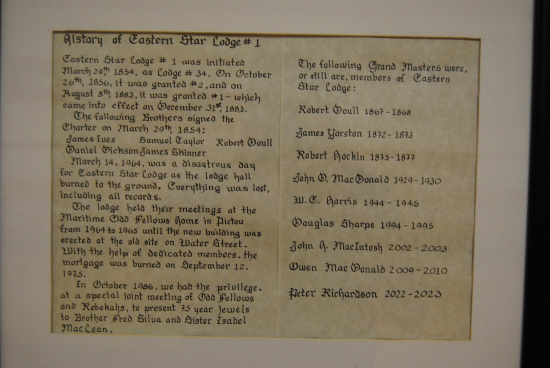 History of Eastern Star Lodge # 1
Eastern Star Lodge # 1 was initiated
March 29th 1854, as Lodge # 34. On October
26th, 1856, it was granted #2, and on
August 8th 1883, it was granted #1 - which
came into effect on December 31st, 1883.
The following Brothers signed the
Charter on March 29th, 1854:
James Ives Samuel Taylor Robert Doull
Daniel Dickson James Skinner
March 14, 1964, was a disastrous day
for Eastern Star Lodge as the lodge hall
burned to the ground. Everything was lost,
including all records.
The lodge held their meetings at the
Maritime Odd Fellows Home in Pictou
from 1964 to 1965 until the new building was
erected at the old site on Water Street.
With the help of dedicated members, the
mortgage was burned on September 12,
1975.
In October 1986, we had the privilege,
at a special joint meeting of Odd Fellows
and Rebekahs, to present 75 year jewels
to Brother Fred Silva and Sister Isabel
MacLean.
The following Grand Masters were,
or still are, members of Eastern
Star Lodge:
Robert Doull 1867 - 1868
James Yorston 1872 - 1873
Robert Hockin 1875 - 1877
John D. MacDonald 1929 - 1930
W.E. Harris 1944 - 1945
Douglas Sharpe 1994 - 1995
John A. MacIntosh 2002 - 2003
Owen MacDonald 2009 - 2010
Peter Richardson 2022 - 2023